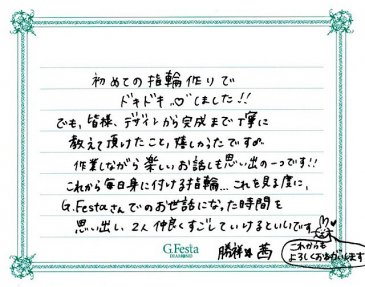 初めての指輪作りで
ドキドキ♡しました!!
でも、皆様、デザインから完成まで丁寧に
教えて頂けたこと、嬉しかったですm
作業しながら楽しいお話しも思い出の一つです!!
これから毎日身に付ける指輪…これを見る度に、
G.Festaさんでのお世話になった時間を
思い出し、2人仲良くすごしていけるといいです。
G.Festa
DIAMOND
勝祥&茜
これからも
よろしくおねがいします